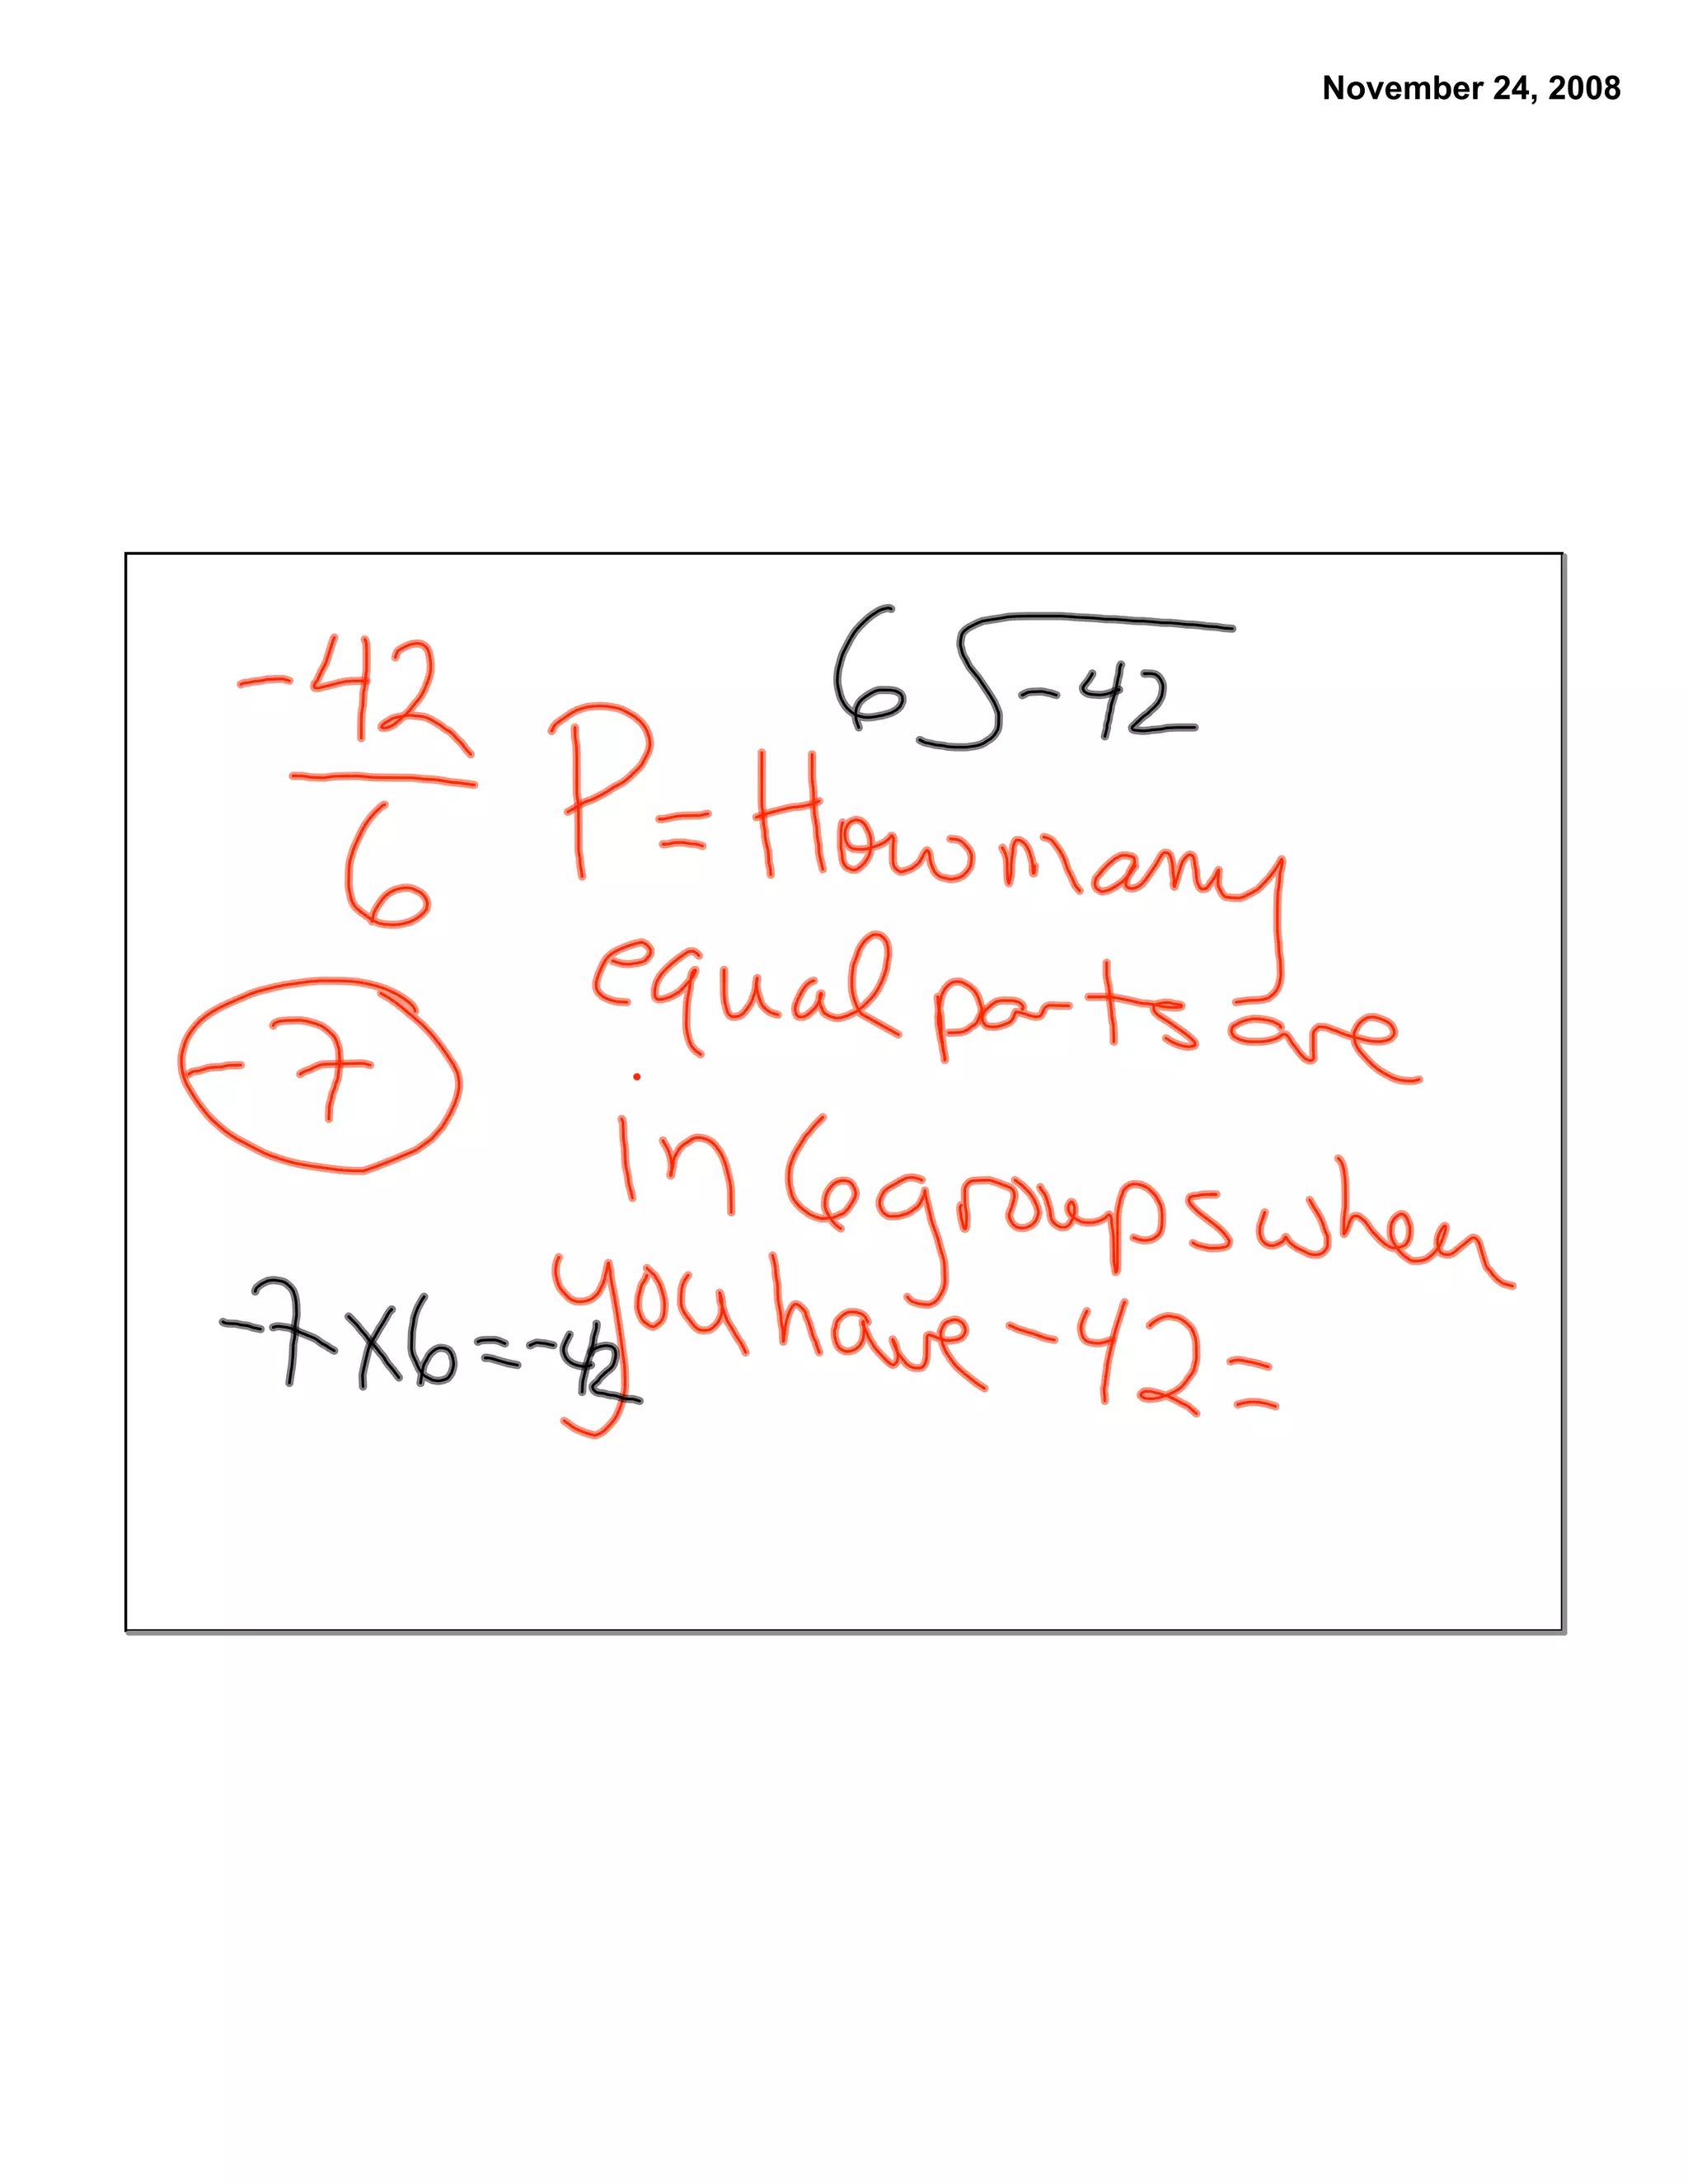 November 24, 2008
-42
6
6√-42
P = How many
equal parts are
in 6 groups when
you have -42 =
-7
-7 x 6 = -42